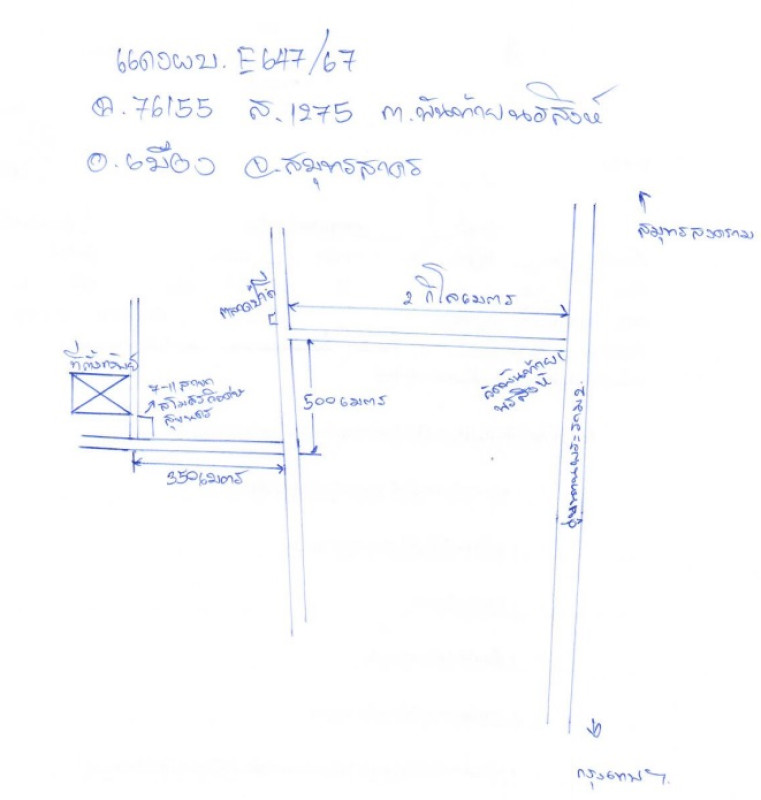 แดงผบ. E647/67
ฉ. 76155 ส. 1275 ต. พันท้ายนรสิงห์
อ. เมือง จ. สมุทรสาคร
สมุทรสงคราม
2 กิโลเมตร
ที่ตั้งทรัพย์
7-11 สาขา
วัดพันท้าย
นรสิงห์
500 เมตร
350 เมตร
ถนนพระราม 2
กรุงเทพฯ